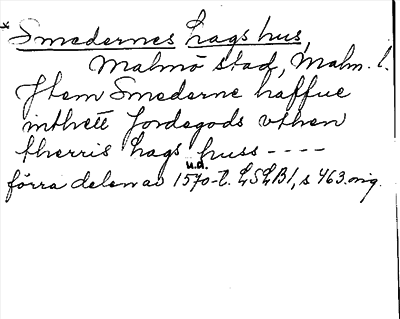 * Smedernes Lags hus,
Malmö stad, Malm. l.
Jtem Smederne haffue
inthett Jordegods vthen
therris Lags huss - - - -
u.d.
förra delen av 1570-t. LSLB1, s 463. orig.